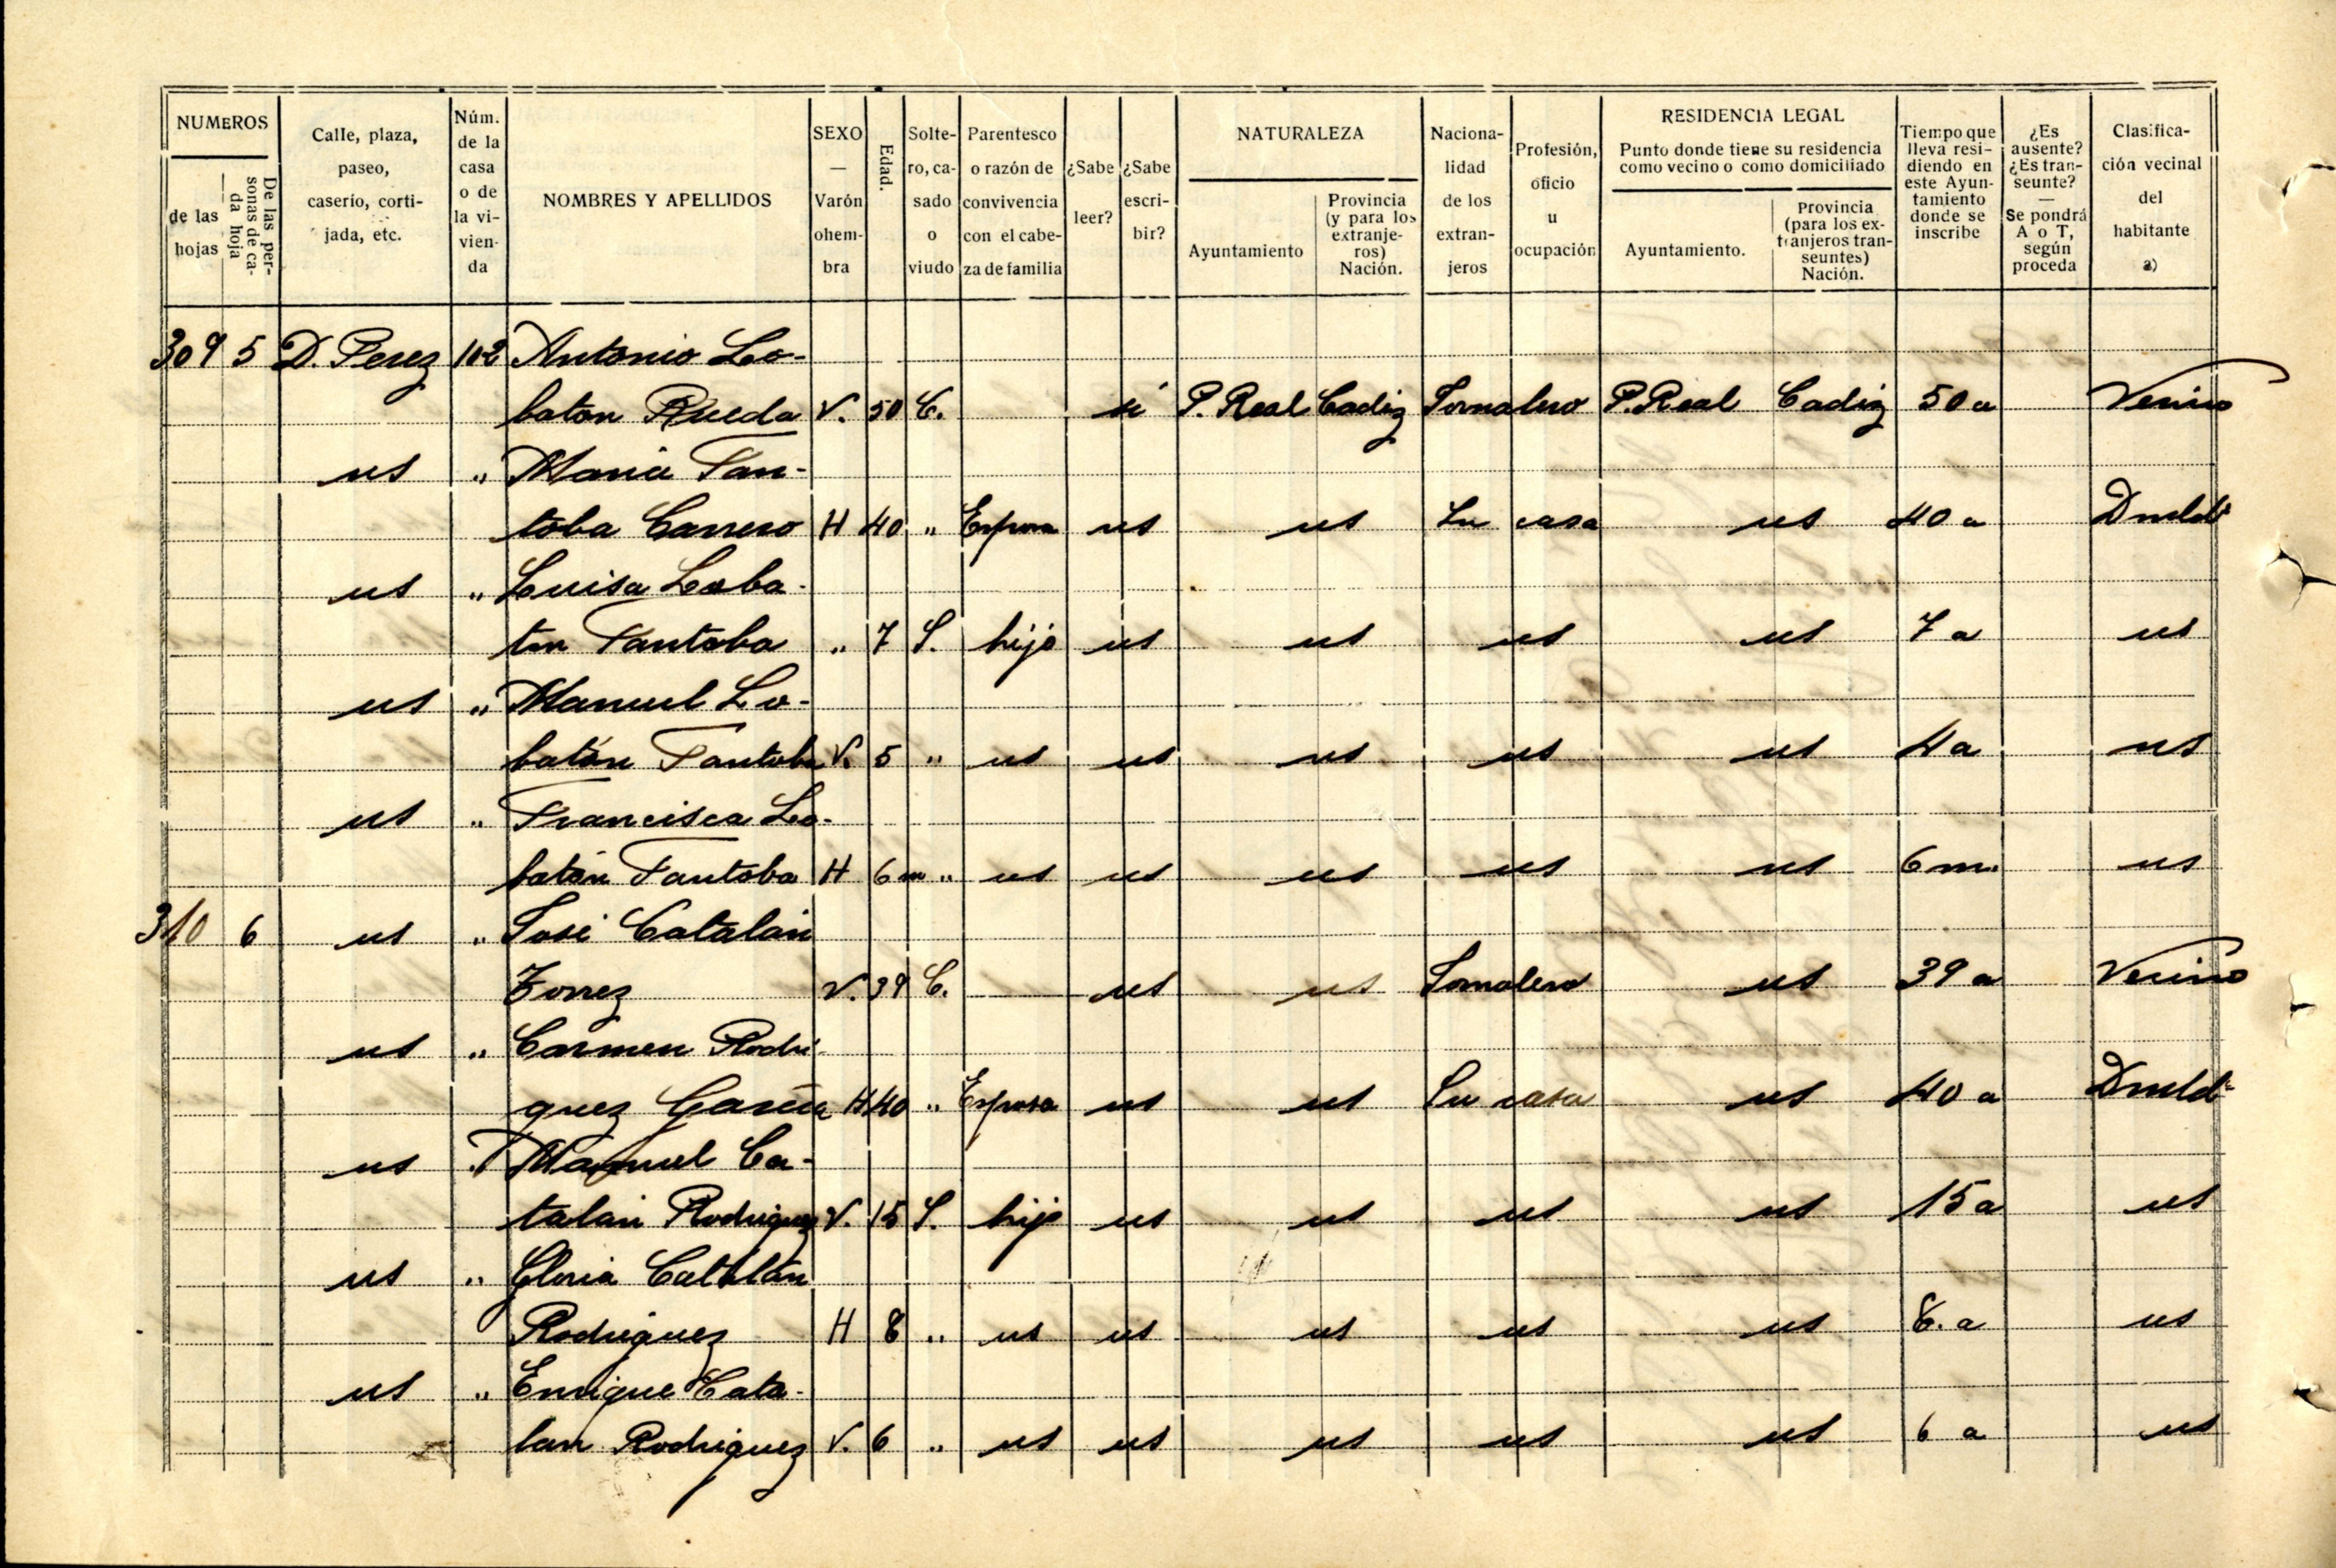 NUMEROS
de las hojas
De las personas de cada hoja
Calle, plaza, paseo, caserío, cortijada, etc.
Núm. de la casa o de la vivienda
NOMBRES Y APELLIDOS
SEXO — Varón ohembra
Edad.
Soltero, casado o viudo
Parentesco o razón de convivencia con el cabeza de familia
¿Sabe leer?
¿Sabe escribir?
NATURALEZA
Ayuntamiento
Provincia (y para los extranjeros) Nación.
Nacionalidad de los extranjeros
Profesión, oficio u ocupación
RESIDENCIA LEGAL
Punto donde tiene su residencia como vecino o como domiciliado
Ayuntamiento.
Provincia (para los extranjeros transeuntes) Nación.
Tiempo que lleva residiendo en este Ayuntamiento donde se inscribe
¿Es ausente? ¿Es transeunte? — Se pondrá A o T, según proceda
Clasificación vecinal del habitante a)
309 5 D. Perez 102 Antonio Lo-
baton Rueda V. 50 C. si P. Real Cadiz Jornalero P. Real Cadiz 50 a Vecino
us " Maria Fan-
toba Carrero H 40 " Esposa us us Su casa us 40 a
us " Luisa Loba-
ton Fantoba " 7 S. hijo us us us us 7 a us
us " Manuel Lo-
batón Fantoba V. 5 " us us us us us 4 a us
us " Francisca Lo-
batón Fantoba H 6 m " us us us us us 6 m. us
310 6 us " José Catalán
Torrez V. 39 C. us us Jornalero us 39 a Vecino
us " Carmen Rodri-
guez García H 40 " Esposa us us Su casa us 40 a
us " Manuel Ca-
talán Rodriguez V. 15 S. hijo us us us us 15 a us
us " Gloria Catalán
Rodriguez H 8 " us us us us us 8. a us
us " Enrique Cata-
lan Rodriguez V. 6 " us us us us us 6 a us